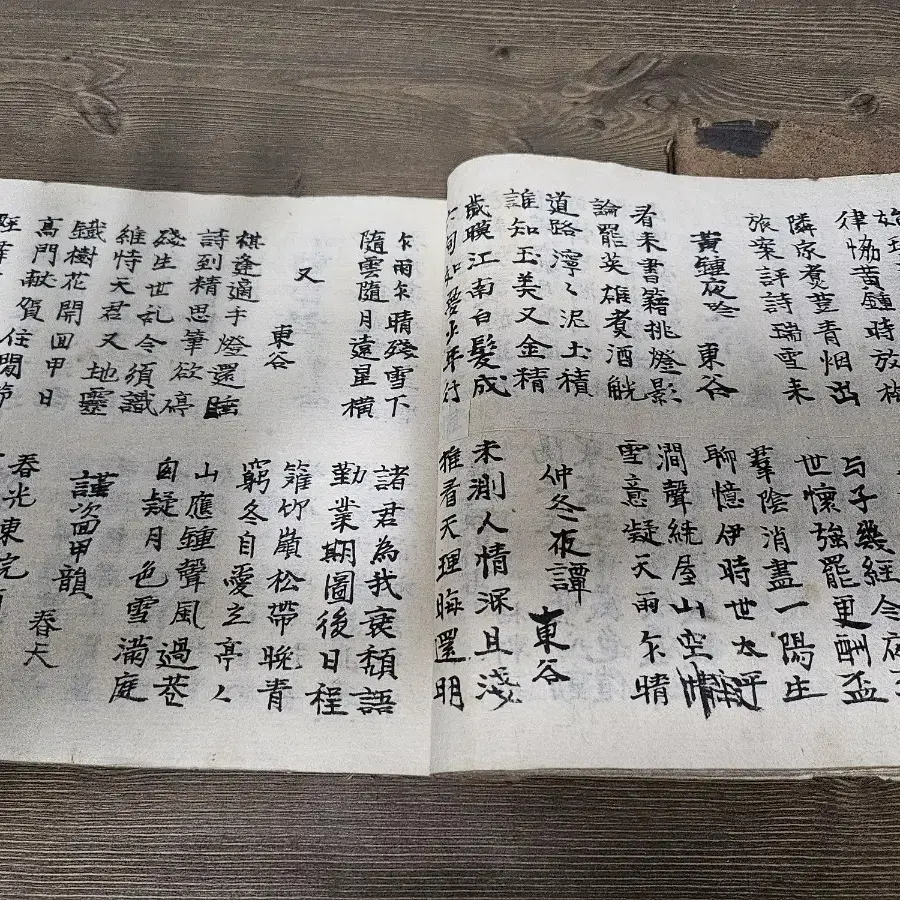 律協黃鍾時放梅
隣家煮荳青烟出
旅案評詩瑞雪来
黃鍾夜吟 東谷
看未書籍挑燈影
論罷英雄煮酒觥
道路濘々泥土積
誰知玉美又金積
歲暖江南白髮成
何如愛少年行
与子幾經今夜
世懷強罷更酬盃
羣陰消盡一陽生
聊憶伊時世太平
澗聲繞屋山空
雪意凝天雨乍晴
仲冬夜譚 東谷
未測人情深且淺
推看天理晦還明
乍雨乍晴殘雪下
隨雲隨月遠星橫
又 東谷
棋逢適手燈還睡
詩到精思筆欲停
殘生世乱今須識
維恃天君又地靈
鐵樹花開回甲日
高門献賀佳閒節
諸君為我衰頹語
勤業期圖後日程
籬竹巖松帶晚青
窮冬自愛之亭々
山應鍾聲風過苍
自疑月色雪滿庭
謹次回甲韻 春大
春光東完